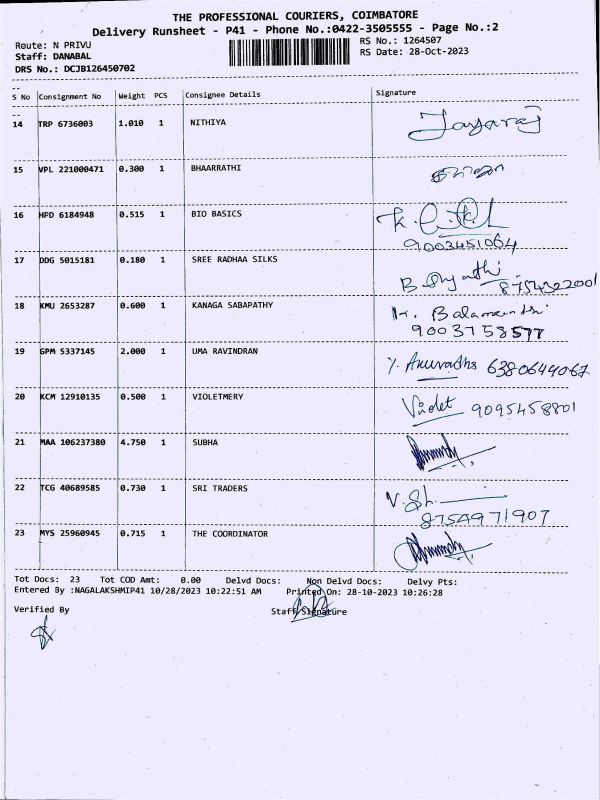 THE PROFESSIONAL COURIERS, COIMBATORE
Delivery Runsheet - P41 - Phone No.:0422-3505555 - Page No.:2
Route: N PRIVU
RS No.: 1264507
Staff: DANABAL
RS Date: 28-Oct-2023
DRS No.: DCJB126450702
S No Consignment No Weight PCS Consignee Details Signature
14 TRP 6736003 1.010 1 NITHIYA Jayaraj
15 VPL 221000471 0.300 1 BHAARRATHI
16 HPD 6184948 0.515 1 BIO BASICS
9003451064
17 DDG 5015181 0.180 1 SREE RADHAA SILKS
8754322001
18 KMU 2653287 0.600 1 KANAGA SABAPATHY K.
9003758577
19 GPM 5337145 2.000 1 UMA RAVINDRAN Anuradha 6380644067
20 KCM 12910135 0.500 1 VIOLETMERY Violet 9095458801
21 MAA 106237380 4.750 1 SUBHA
22 TCG 40689585 0.730 1 SRI TRADERS
8754971907
23 MYS 25960945 0.715 1 THE COORDINATOR
Tot Docs: 23 Tot COD Amt: 0.00 Delvd Docs: Non Delvd Docs: Delvy Pts:
Entered By :NAGALAKSHMIP41 10/28/2023 10:22:51 AM Printed On: 28-10-2023 10:26:28
Verified By Staff Signature